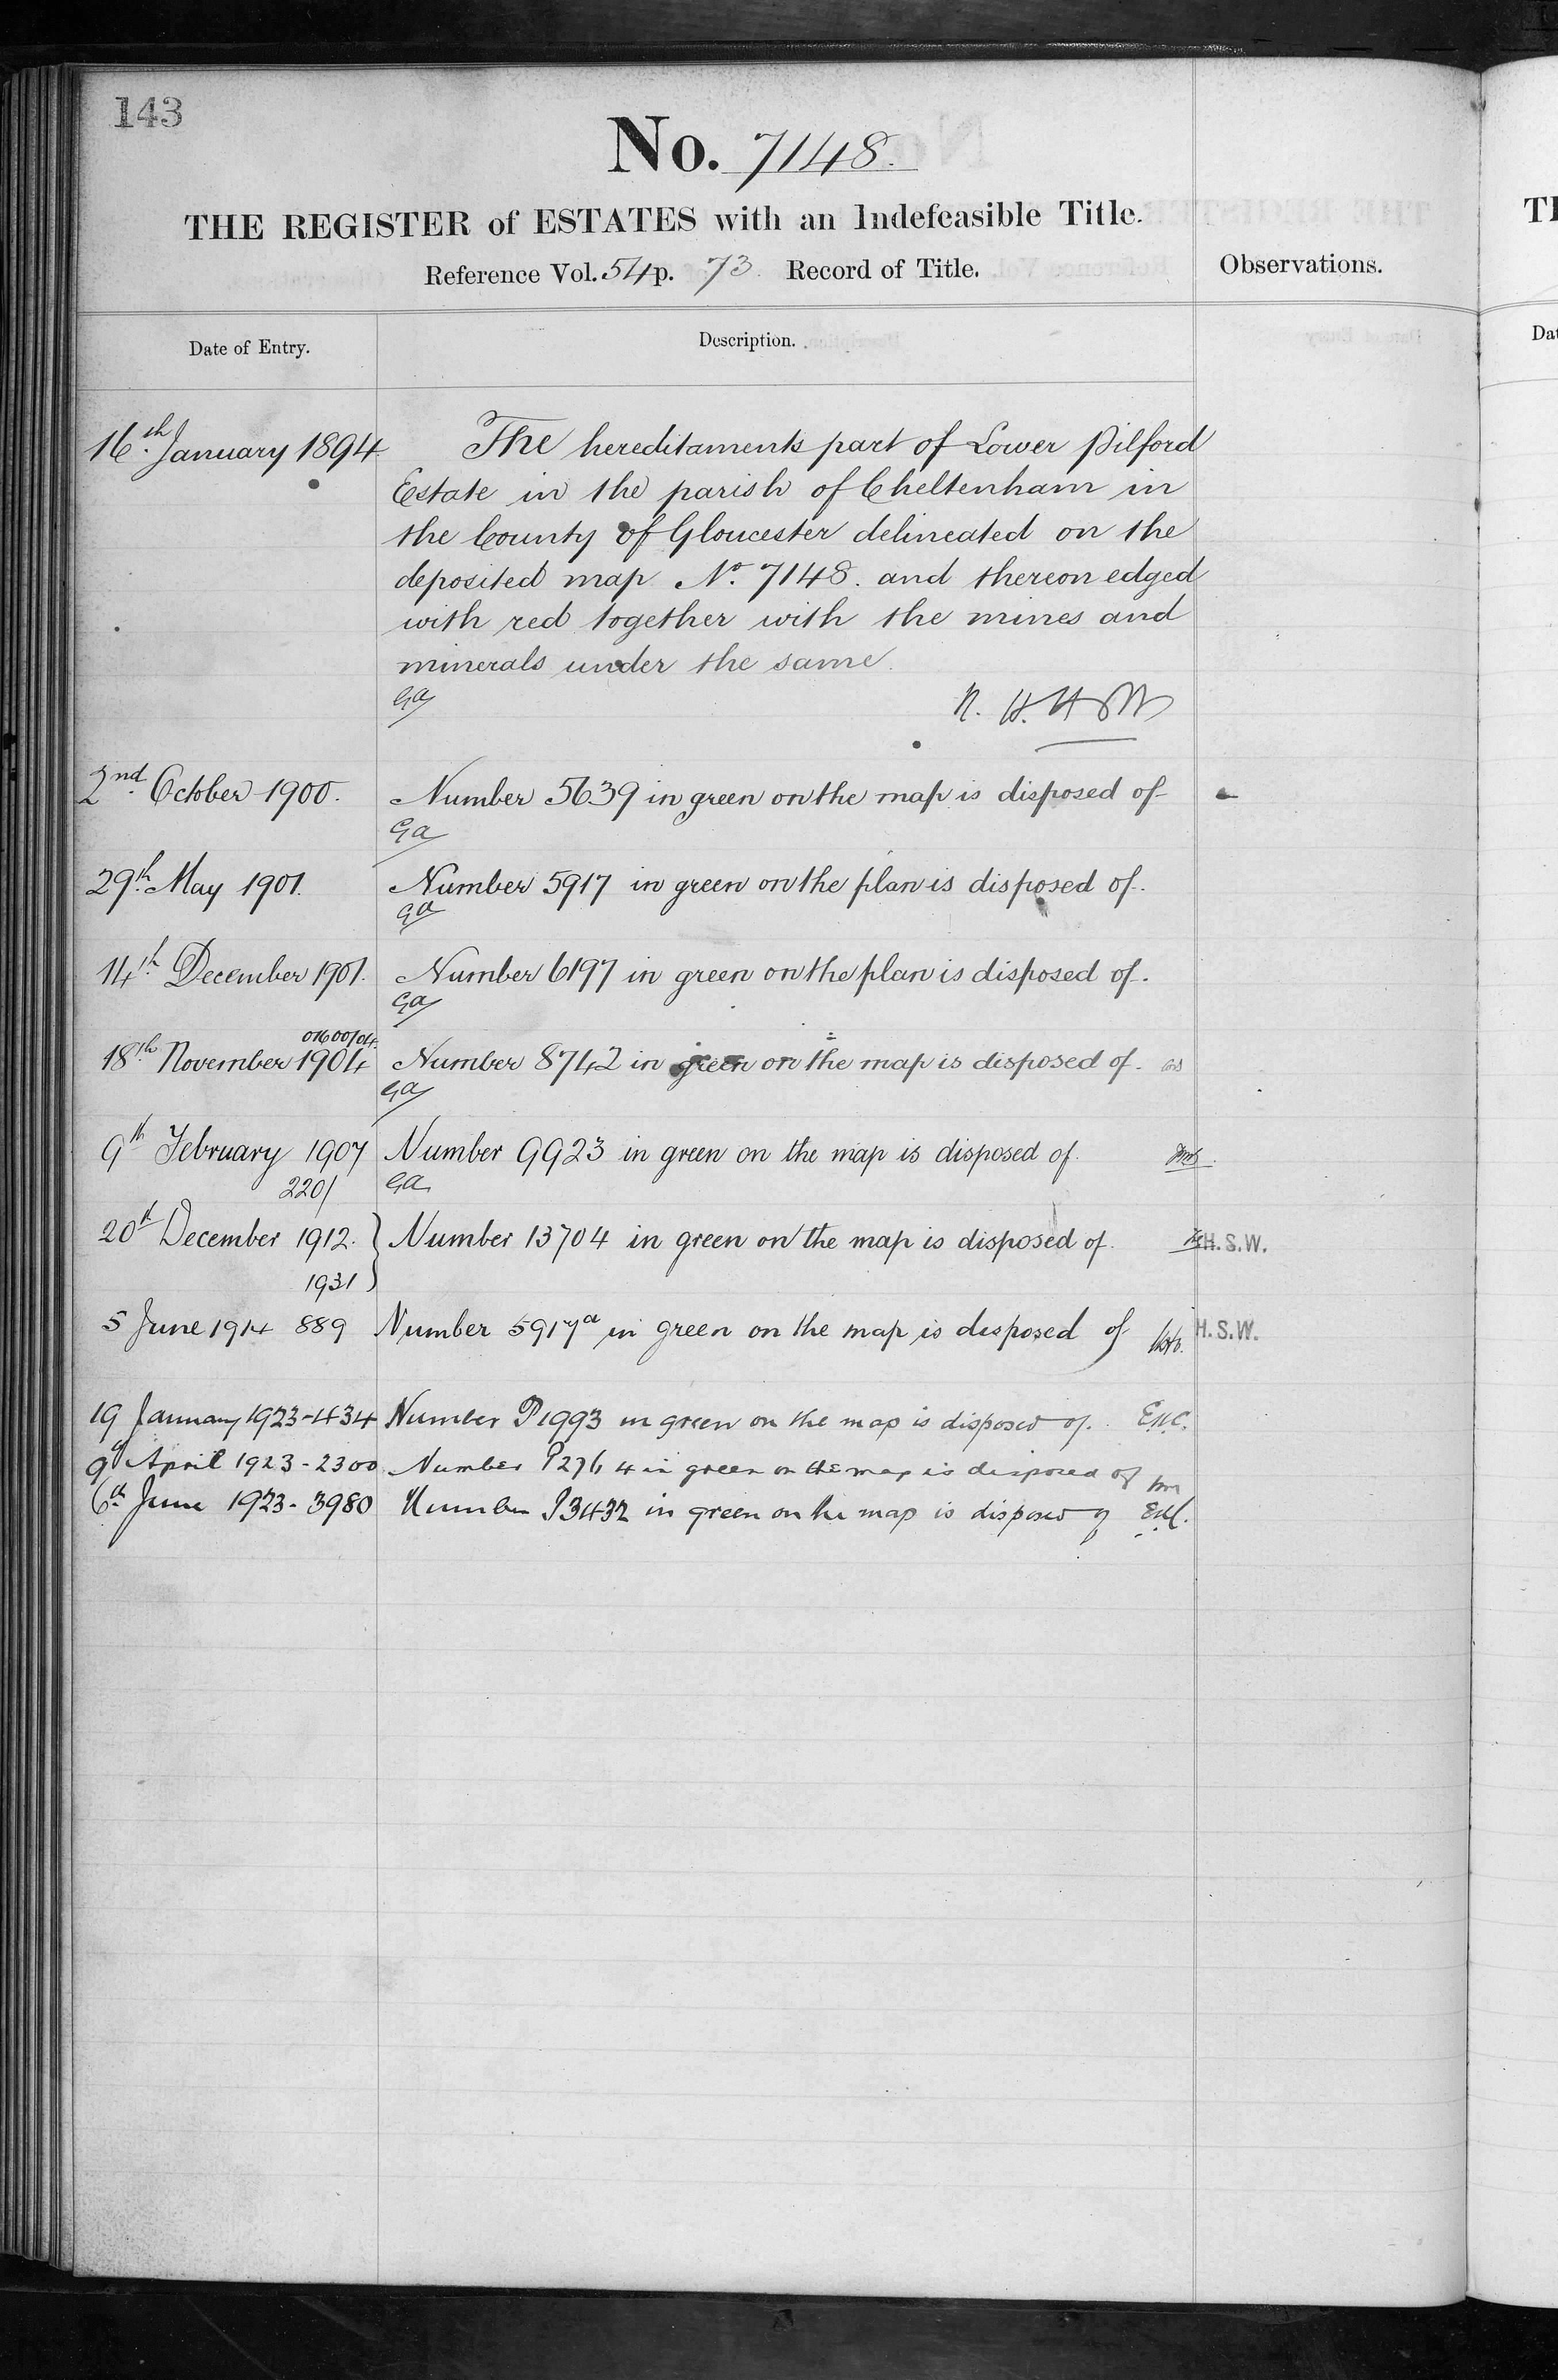 143
No. 7148.
THE REGISTER of ESTATES with an Indefeasible Title.
Reference Vol. 54 p. 73 Record of Title.
Observations.
Date of Entry.
Description.
16th. January 1894
The hereditaments part of Lower Pilford
Estate in the parish of Cheltenham in
the County of Gloucester delineated on the
deposited map No. 7148. and thereon edged
with red together with the mines and
minerals under the same.
Ga
2nd. October 1900.
Number 5639 in green on the map is disposed of
Ga
29th. May 1901.
Number 5917 in green on the plan is disposed of.
Ga
14th. December 1901.
Number 6197 in green on the plan is disposed of.
Ga
18th November 1904
Number 8742 in green on the map is disposed of.
Ga
9th February 1907
Number 9923 in green on the map is disposed of
220/
Ga
20th December 1912.
Number 13704 in green on the map is disposed of.
H. S. W.
1931
5 June 1914 889
Number 5917a in green on the map is disposed of
H. S. W.
19 January 1923-434
Number P1993 in green on the map is disposed of.
9th April 1923-2300
Number P2764 in green on the map is disposed of
6th June 1923-3980
Number P3432 in green on the map is disposed of
TH
Dat